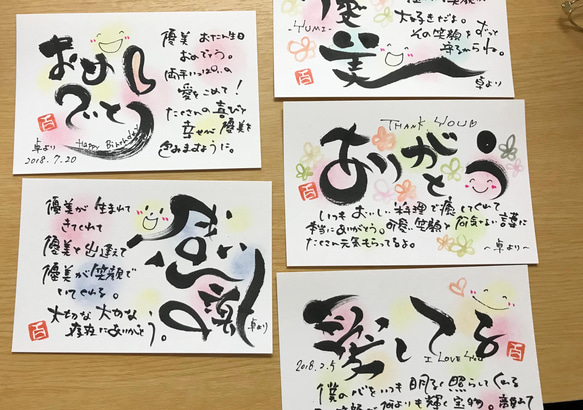 おめでとう
優美 お誕生日
おめでとう。
両手いっぱいの
愛をこめて!
たくさんの喜びと
幸せが優美を
包みますように。
Happy Birthday
卓より
2018.7.20
百
優美
-YUMI-
大好きだよ。
その笑顔をずっと
守るからね。
卓より
THANK YOU
ありがとう
いつもおいしい料理で癒してくれて
本当にありがとう。
たくさん元気もらってるよ。
~卓より~
百
感謝
優美が生まれて
きてくれて
優美と出逢えて
優美が笑顔で
いてくれる。
大切な大切な
存在にありがとう。
卓より
百
愛してる
I LOVE YOU
2018.2.5
百
僕の心をいつも明るく照らしてくれる